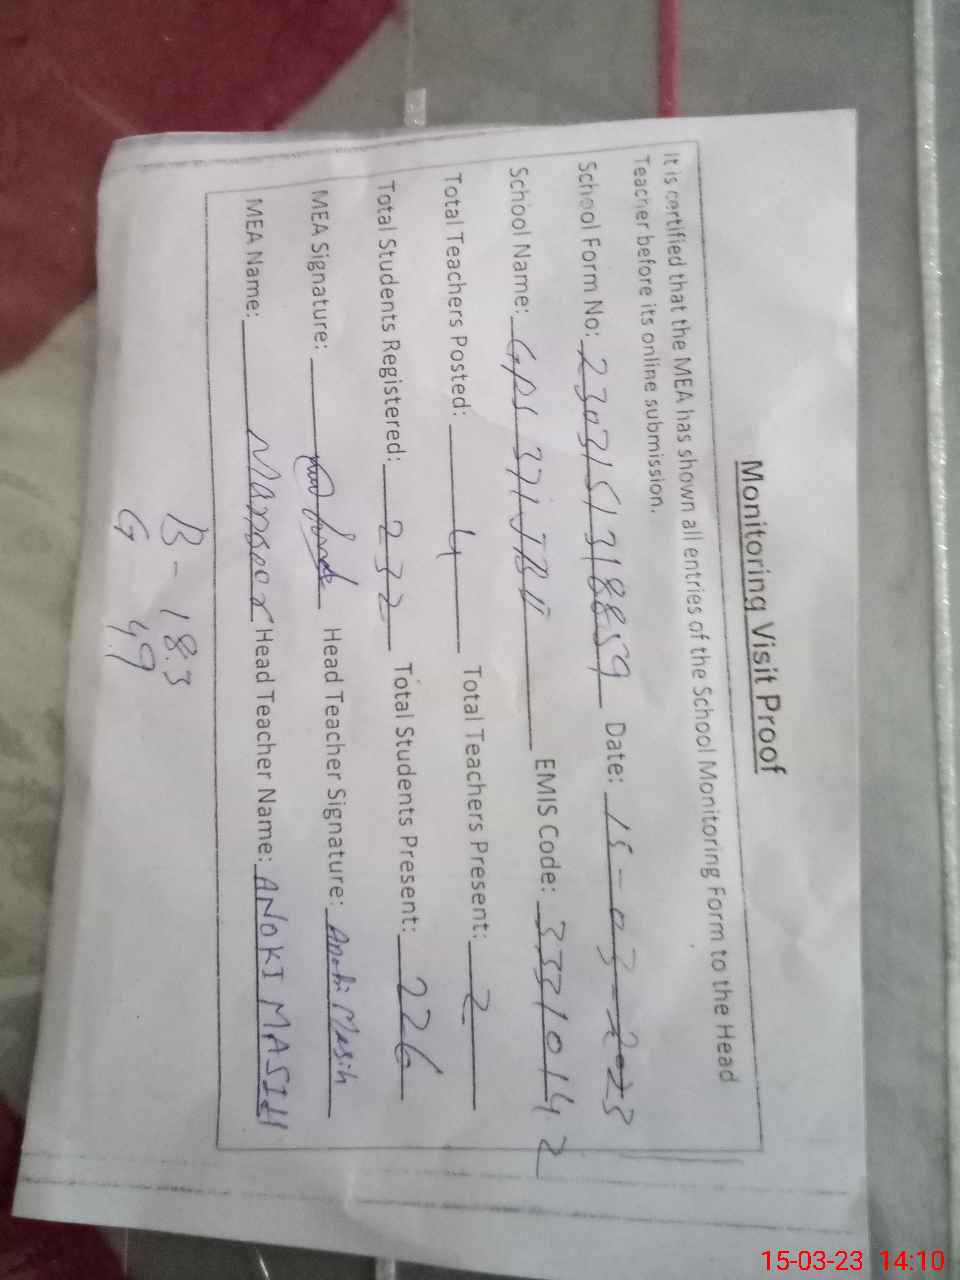 Monitoring Visit Proof
It is certified that the MEA has shown all entries of the School Monitoring Form to the Head
Teacher before its online submission.
School Form No: 2303151318859 Date: 15-03-2023
School Name: GPS 371 JB EMIS Code: 33310142
Total Teachers Posted: 4 Total Teachers Present: 2
Total Students Registered: 232 Total Students Present: 226
MEA Signature: Head Teacher Signature: Anoki Masih
MEA Name: Mansoor Head Teacher Name: ANOKI MASIH
B - 183
G 49
15-03-23 14:10